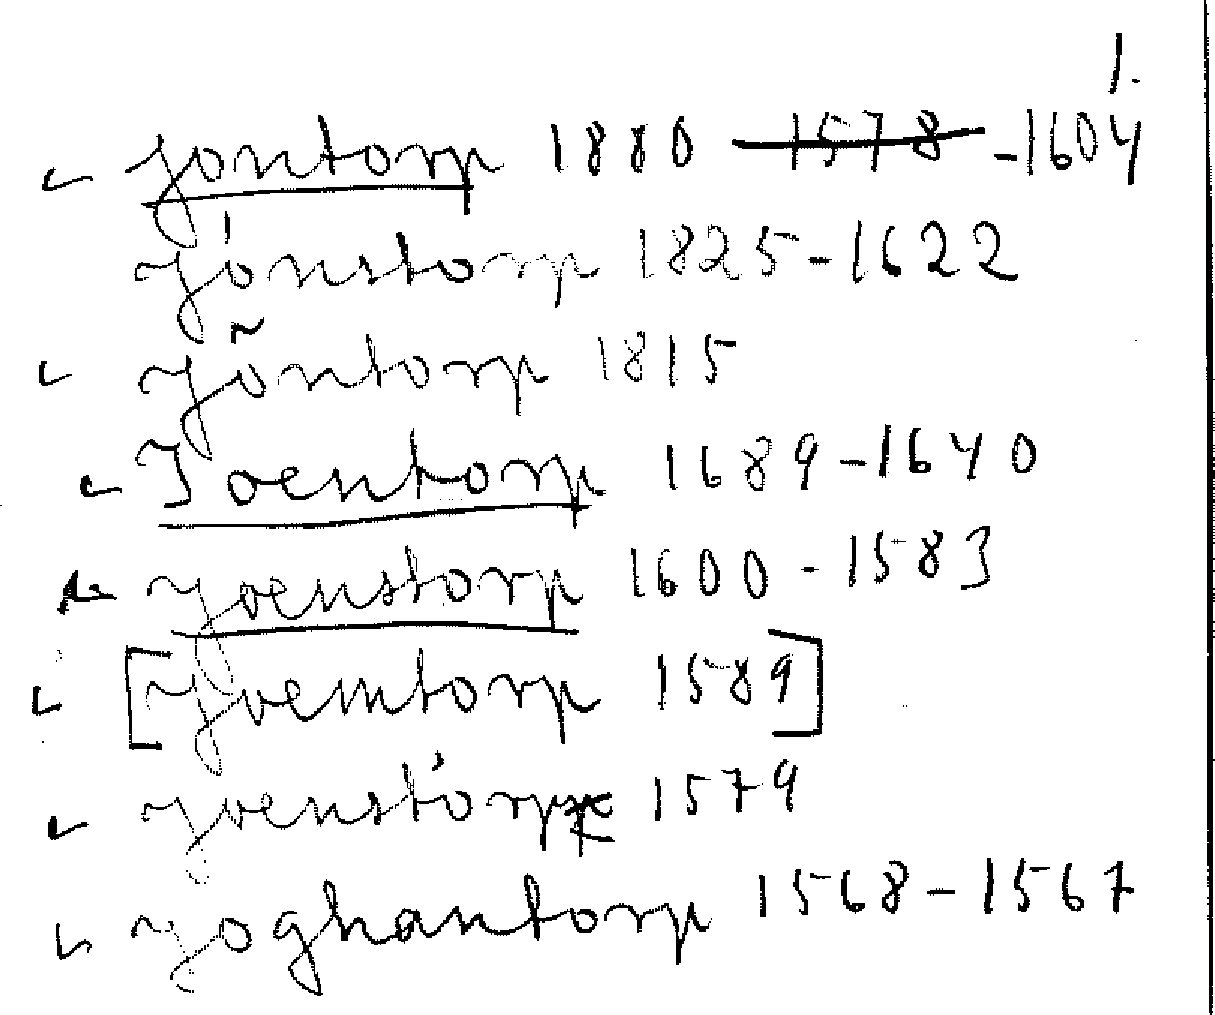 1.
Jontorp 1880 1578 -1604
Jónstorp 1825-1622
Jõntorp 1815
Joentorp 1689-1640
Joenstorp 1600-1583
[Joemtorp 1589]
Joenstórp 1579
Joghantorp 1568-1567